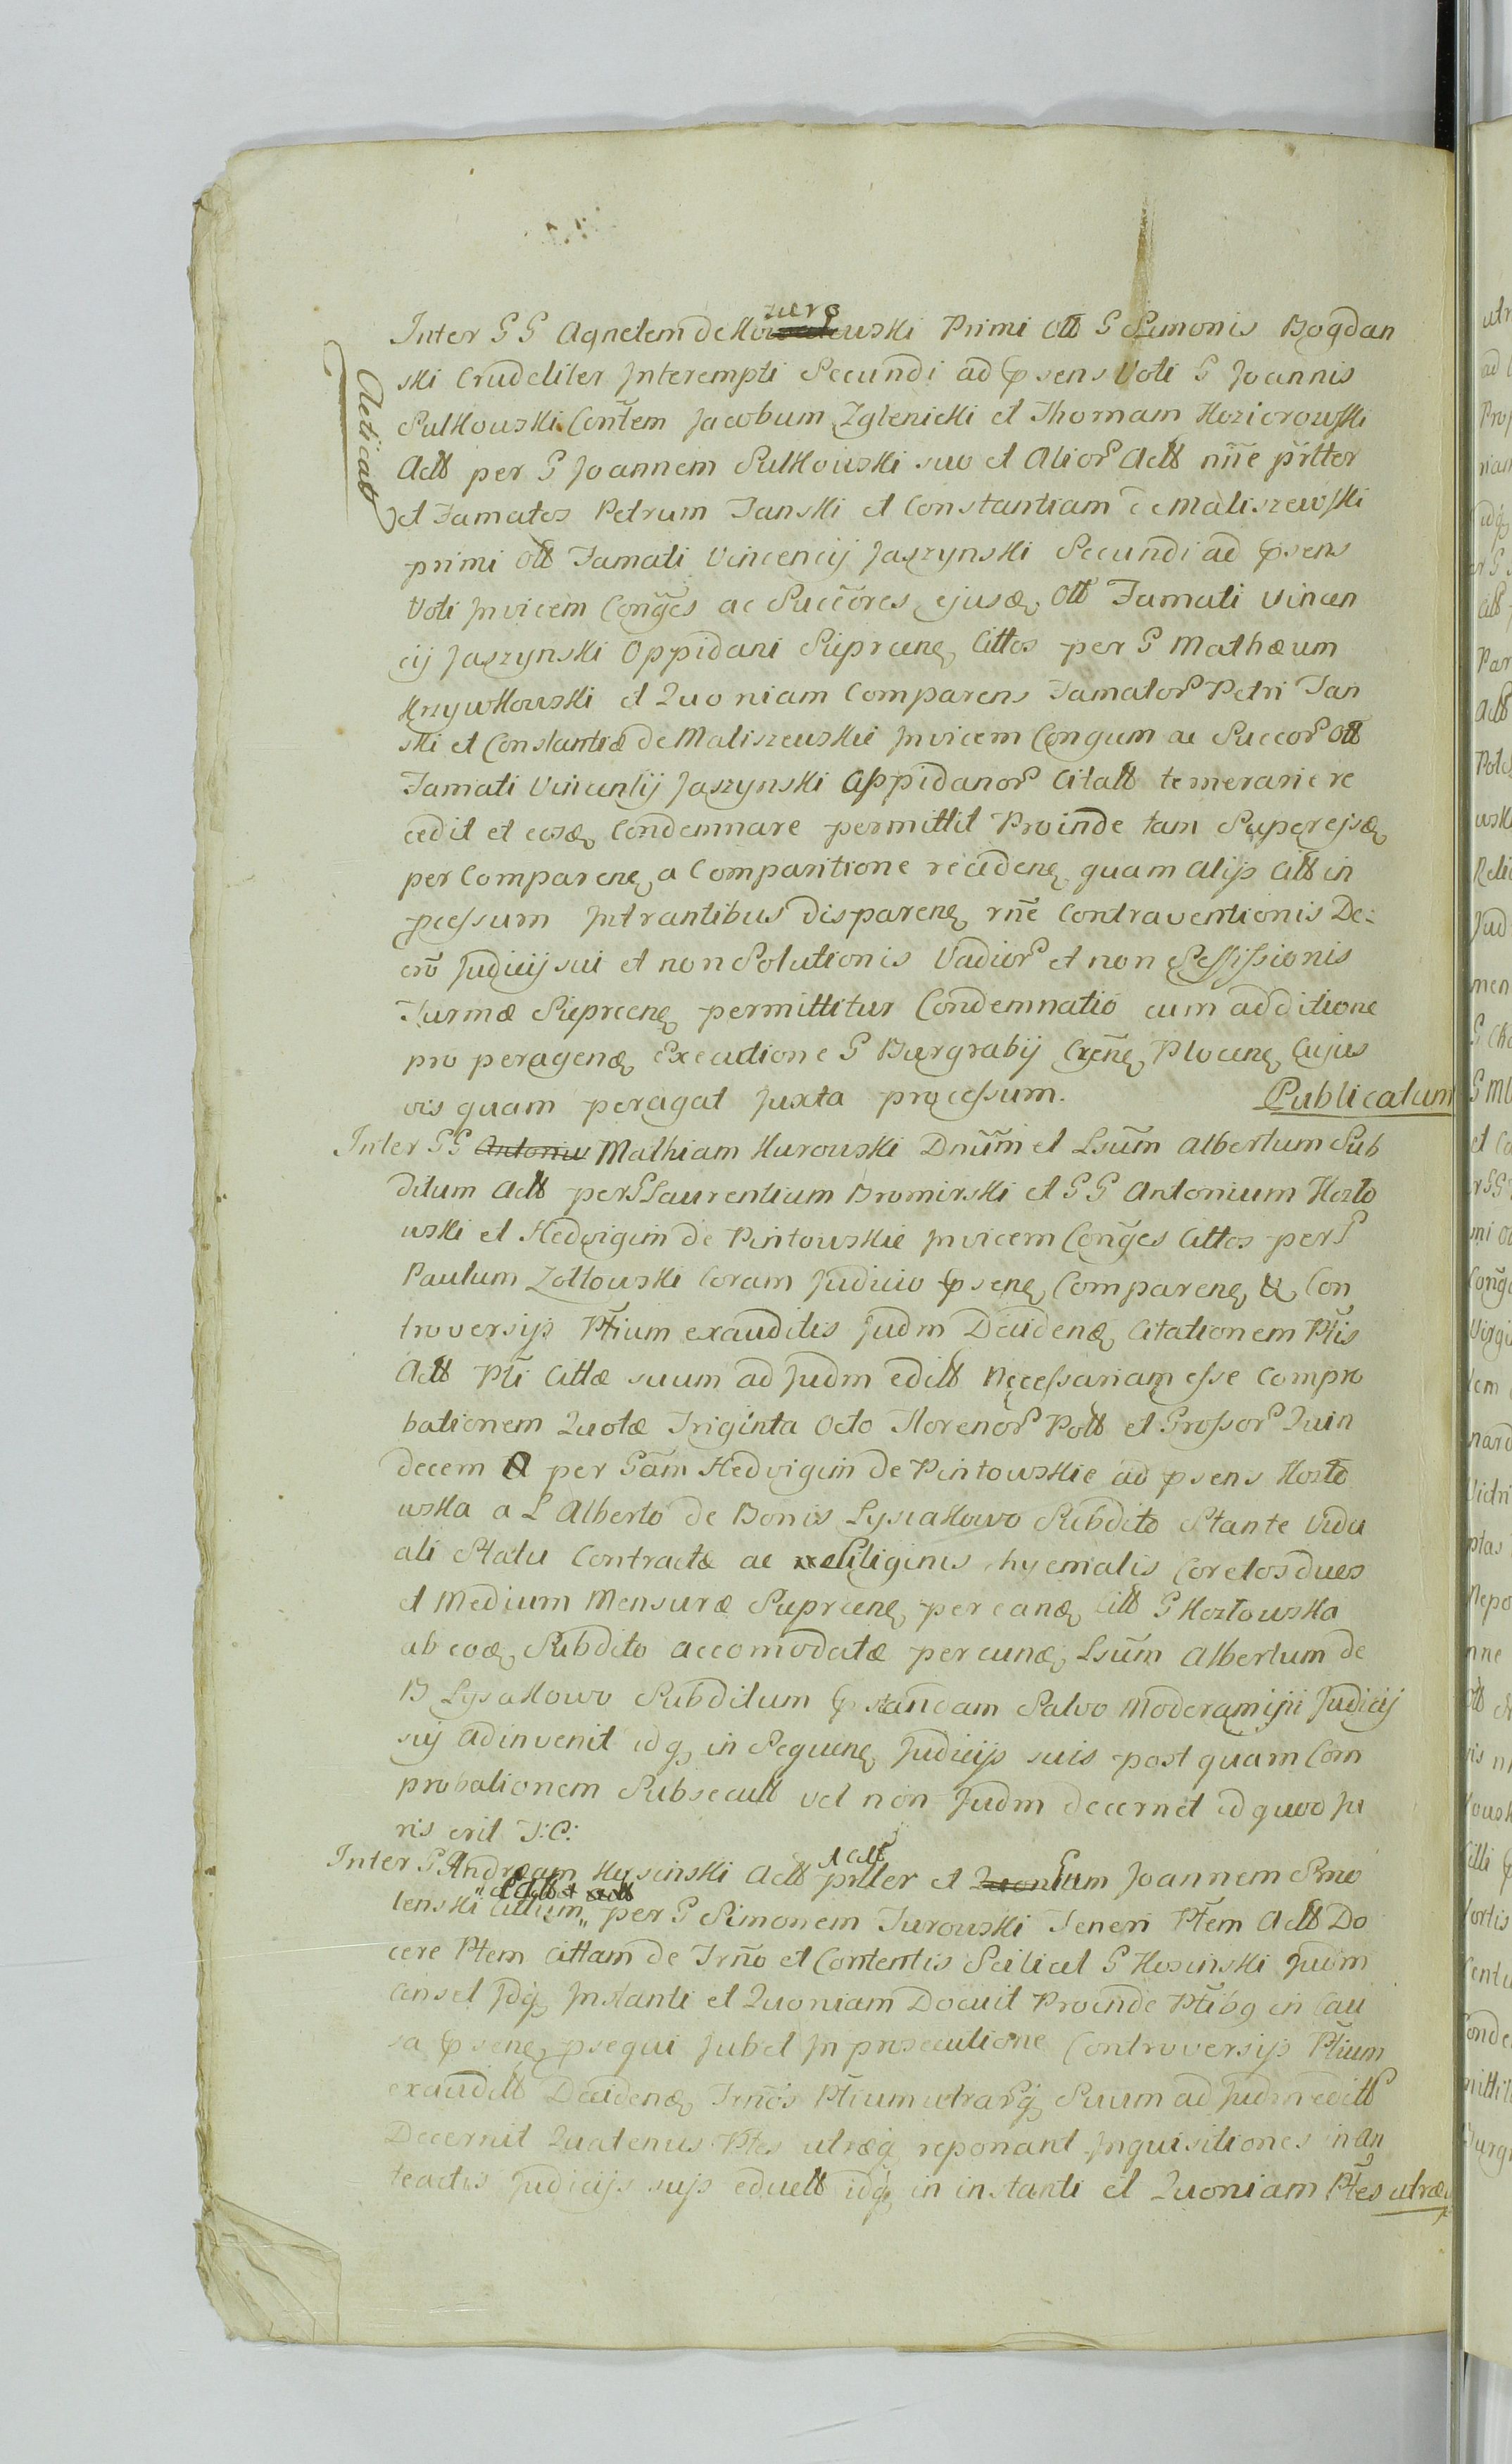 Inter G G Agnetem de Kowalewski Primi Ott G Simonis Bogdan
ski Crudeliter Interempti Secundi ad psens Voti G Joannis
Sulkowski Con̄tem Jacobum Zglenicki et Thomam Koziorowski
Actt per G Joannem Sulkowski suo et Alior Actt nn̄e pr̄tter
et Famatos Petrum Janski et Constantiam de Maliszewski
primi Ott Famati Vincencij Jaszynski Secundi ad psens
Voti Invicem Con̄ges ac Succ̄ores ejusd Ott Famati Vincen
cij Jaszynski Oppidani Sieprcenq Cittos per G Mathæum
Krzywkowski et Quoniam Comparens Famator Petri Jan
ski et Constantiæ de Maliszewskie Invicem Congum ac Succor Ott
Famati Vincentij Jaszynski Oppidanor Citatt temerarie re
cedit et eosd Condemnare permittit Proinde tam Super ejsd
per Comparenq a Comparitione recedenq quam Alijs Citt in
pcessum Intrantibus disparenq rn̄e Contraventionis De:
crō Judicij sui et non Solutionis Vadior et non Sessissionis
Turmæ Sieprcenq permittitur Condemnatio cum additione
pro peragend Executione G Burgrabij Cr̄enq Plocenq Cujus
vis quam peragat Juxta processum. Publicatum
Aeticatt
Inter G G Antoniu Mathiam Kurowski Dnūm et Lsūm Albertum Sub
ditum Actt per G Laurentium Bromirski et G G Antonium Kozło
wski et Hedvigim de Pintowskie Invicem Con̄ges Cittos per G
Paulum Zołtowski Coram Judicio psenq Comparenq & Con
troversijs Pt̄ium exauditis Judm Decidend Citationem Pt̄is
Actt Pt̄i Cittæ suum ad Judm editt Necessariam esse Compro
bationem Quotæ Triginta Octo Florenor Pott et Grossor Quin
decem A per Gām Hedvigim de Pintowskie ad psens Kozło
wska a L Alberto de Bonis Lysakowo Subdito Stante Vidu
ali Statu Contractæ ac Siliginis hyemalis Coretos duos
et Medium Mensuræ Sieprcenq per eand Citt G Kozłowska
ab eod Subdito accomodatæ per eund Lsūm Albertum de
B Lysakowo Subditum pstandam Salvo Moderamini Judicij
sui adinvenit idq in Sequenq Judicijs suis post quam Com
probationem Subsecutt vel non Judm decernet id quod Ju
ris erit T:C:
Inter G Andream Kosinski Actt pntter et Quoniam Joannem Smo
lenski Cittum per G Simonem Turowski Teneri Pt̄em Actt Do
cere Ptem Cittam de Trn̄o et Contentis Scilicet G Kosinski Judm
Censet Idq Instanti et Quoniam Docuit Proinde Pt̄ibq in Cau
sa psenq psequi Jubet In prosecutione Controversijs Pt̄ium
exauditt Decidend Trn̄os Pt̄ium utrarq Suum ad Judm editt
Decernit Quatenus Ptes utræq reponant Inquisitiones in An
teactis Judicijs sujs eductt idq in instanti et Quoniam Pt̄es utræq